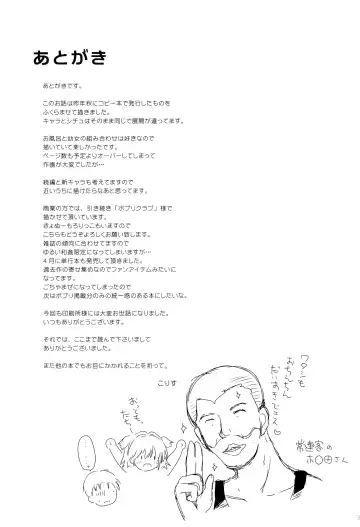 あとがき
あとがきです。
このお話は昨年秋にコピー本で発行したものを
ふくらませて描きました。
キャラとシチュはそのまま同じで展開が違ってます。
お風呂と幼女の組み合わせは好きなので
描いていて楽しかったです。
ページ数も予定よりオーバーしてしまって
作画が大変でしたが
続編と新キャラも考えてますので
近いうちに描けたらなあと思ってます。
商業の方では、引き続き「ポプリクラブ」様で
描かせて頂いています。
きょぬーもろりっこもいますので
こちらもどうぞよろしくお願い致します。
雑誌の傾向に合わせてますので
ゆるい和姦限定になってしまいますが…
４月に単行本も発売して頂きました。
過去作の寄せ集めなのでファンアイテムみたいに
なってます。
ごちゃまぜになってしまったので
次はポプリ掲載分のみの統一感のある本にしたいな。
今回も印刷所様には大変お世話になりました。
いつもありがとうございます。
それでは、ここまで読んで下さいまして
ありがとうございました。
また他の本でもお目にかかれることを祈って。
こりす
ワタシも
おちんちん
だいすきデェス♡
常連客の
ホ〇田さん
おっても